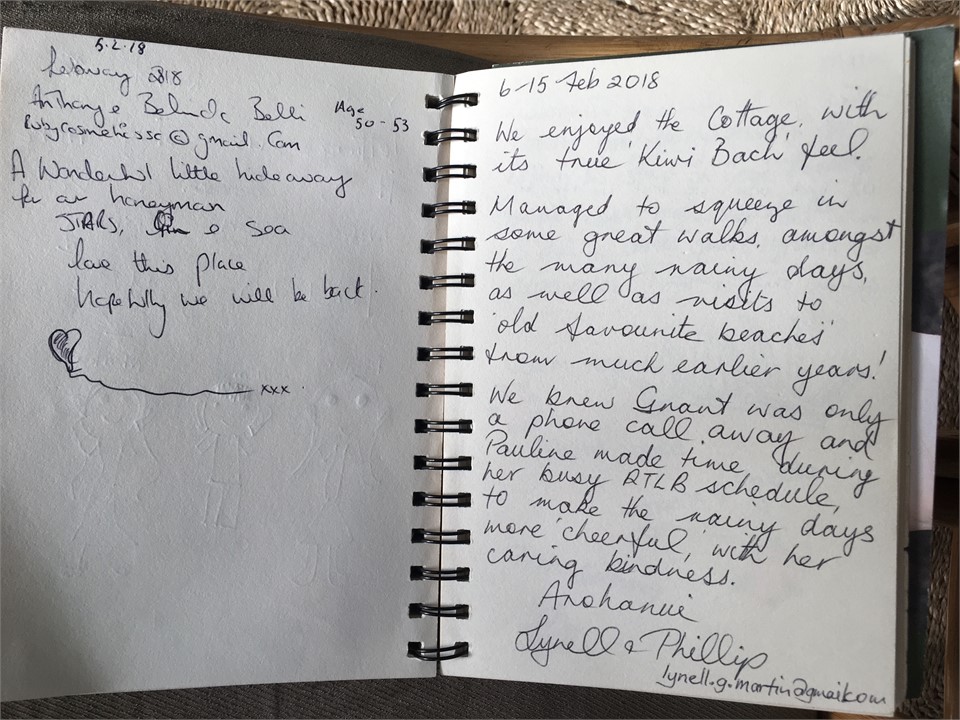 5.2.18
February 2018
Anthony & Belinda Belli
Age
50-53
A Wonderful little hideaway
for our honeyman
STARS, & Sea
love this place
Hopefully we will be back.
xxx.
6-15 Feb 2018
We enjoyed the Cottage, with
its true 'Kiwi Bach' feel.
Managed to squeeze in
some great walks, amongst
the many rainy days,
as well as visits to
'old favourite beaches'
from much earlier years!
We knew Grant was only
a phone call away and
Pauline made time, during
her busy RTLB schedule,
to make the rainy days
more 'cheerful,' with her
caring kindness.
Arohanui
Lynell & Phillip
lynell.g.martin@gmail.com